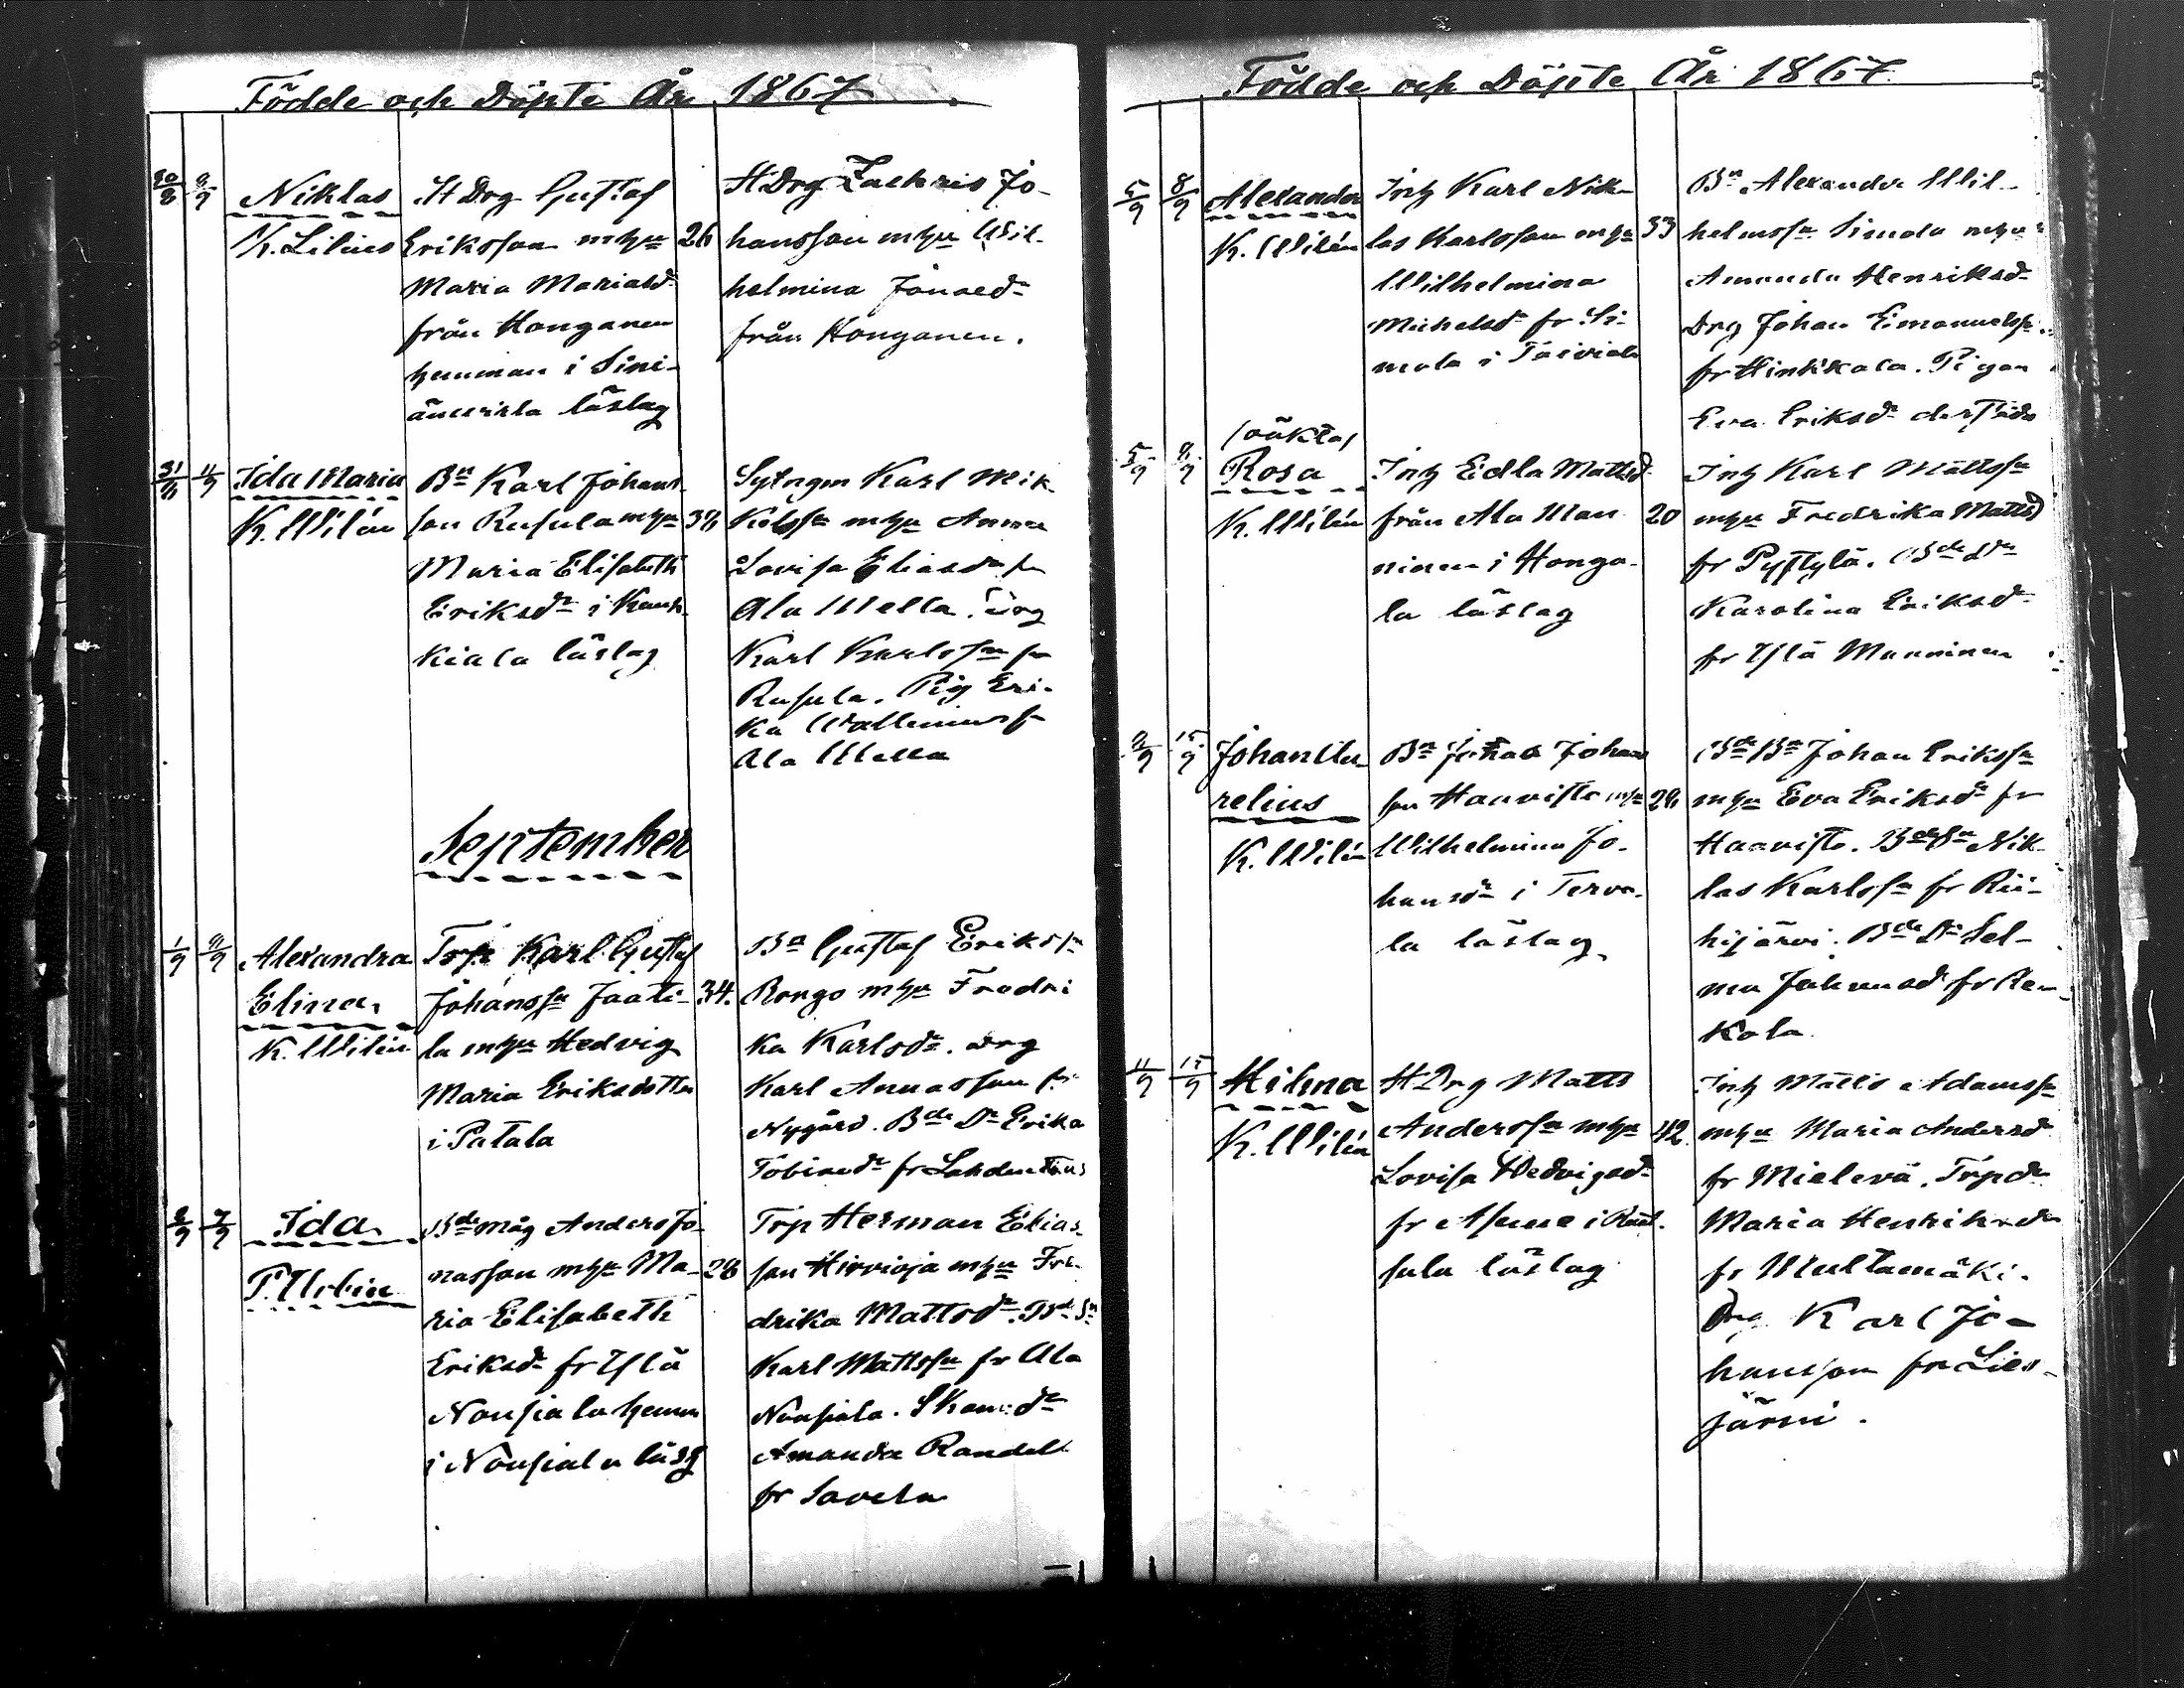 Födde och Döpte År 1867
30/8 8/9 Niklas
K. Lilius
H Drg Gustaf
Eriksson mhu 26
Maria Mariasdr
från Honganen
hemman i Sini-
läslag
HDrg Zachris Jo-
hansson mhu Wil-
helmina Jonaedr
från Honganen.
31/8 Ida Maria
K. Wilén
Bn Karl Johans-
son Rusula mhu
Maria Elisabeth
Eriksdr i Kauk-
kiala läslag
Karl Mik-
mhu Anna
Lovisa Eliasdr fr
Ala Drg
Karl Karlsson fr
Rusula. Pig Eri-
ka
Ala
September
1/9 Alexandra
Elina
K. Wilén
Trp Karl Gustaf
Johanssn Jaati- 34.
la mhu Hedvig
Maria Eriksdotter
i Patala
Bn Gustaf Erikssn
Rongo mhu Fredri
ka Karlsdr. Drg
Karl Annasson fr
Nygård. Bde Dr Erika
fr
Ida
P. Urbin
Bdemåg Anders Jo-
nasson mhu Ma- 28
ria Elisabeth
Eriksdr fr Ylä
Nousiala hemm
i Nousiala läsg
Trp Herman Elias
son Hirvioja mhu Fre-
drika Mattsdr. Bde Sn
Karl Mattssn fr Ala
Nousiala.
Amanda Randell
fr Savela
Födde och Döpte År 1867
5/9 8/9 Alexander
K. Wilén
Inh Karl Nik-
las Karlsson mhu 33
Wilhelmina
Michelsdr fr Si-
mola i
Bn Alexander Wil-
helmssn Simola mhu
Amanda Henriksdr
Drg Johan Emanuelssn
fr Hinkkala. Pigan
Eva Eriksdr derstädes
(oäkta)
5/9 8/9 Rosa
K. Wilén
Inh Edla Mattsd
från Ala Man- 20
ninen i Honga-
la läslag
Inh Karl Mattssn
mhu Fredrika Mattsd
fr Pystylä. Bde Dr
Karolina Eriksdr
fr Ylä Manninen
8/9 15/9 Johan Au-
relius
K. Wilén
Bn Johan Johans
son Haavisto mhu
Wilhelmina Jo-
hansdr i Terva-
la läslag
Bde Bn Johan Erikssn
mhu Eva Eriksdr fr
Haavisto. Bde Sn Nik-
las Karlssn fr Rii-
hijärvi. Bde Dr Sel-
ma Johansd fr
kola
11/9 15/9 Hilma
K. Wilén
HDrg Matts
Anderssn mhu 42
Lovisa Hedvigsdr
fr i
sula läslag
Inh Matts Adamssn
mhu Maria Andersdr
fr Mielevä. Trpdr
Maria Henriksdr
fr Multamäki.
Drg Karl Jo-
hansson fr Lies-
järvi.